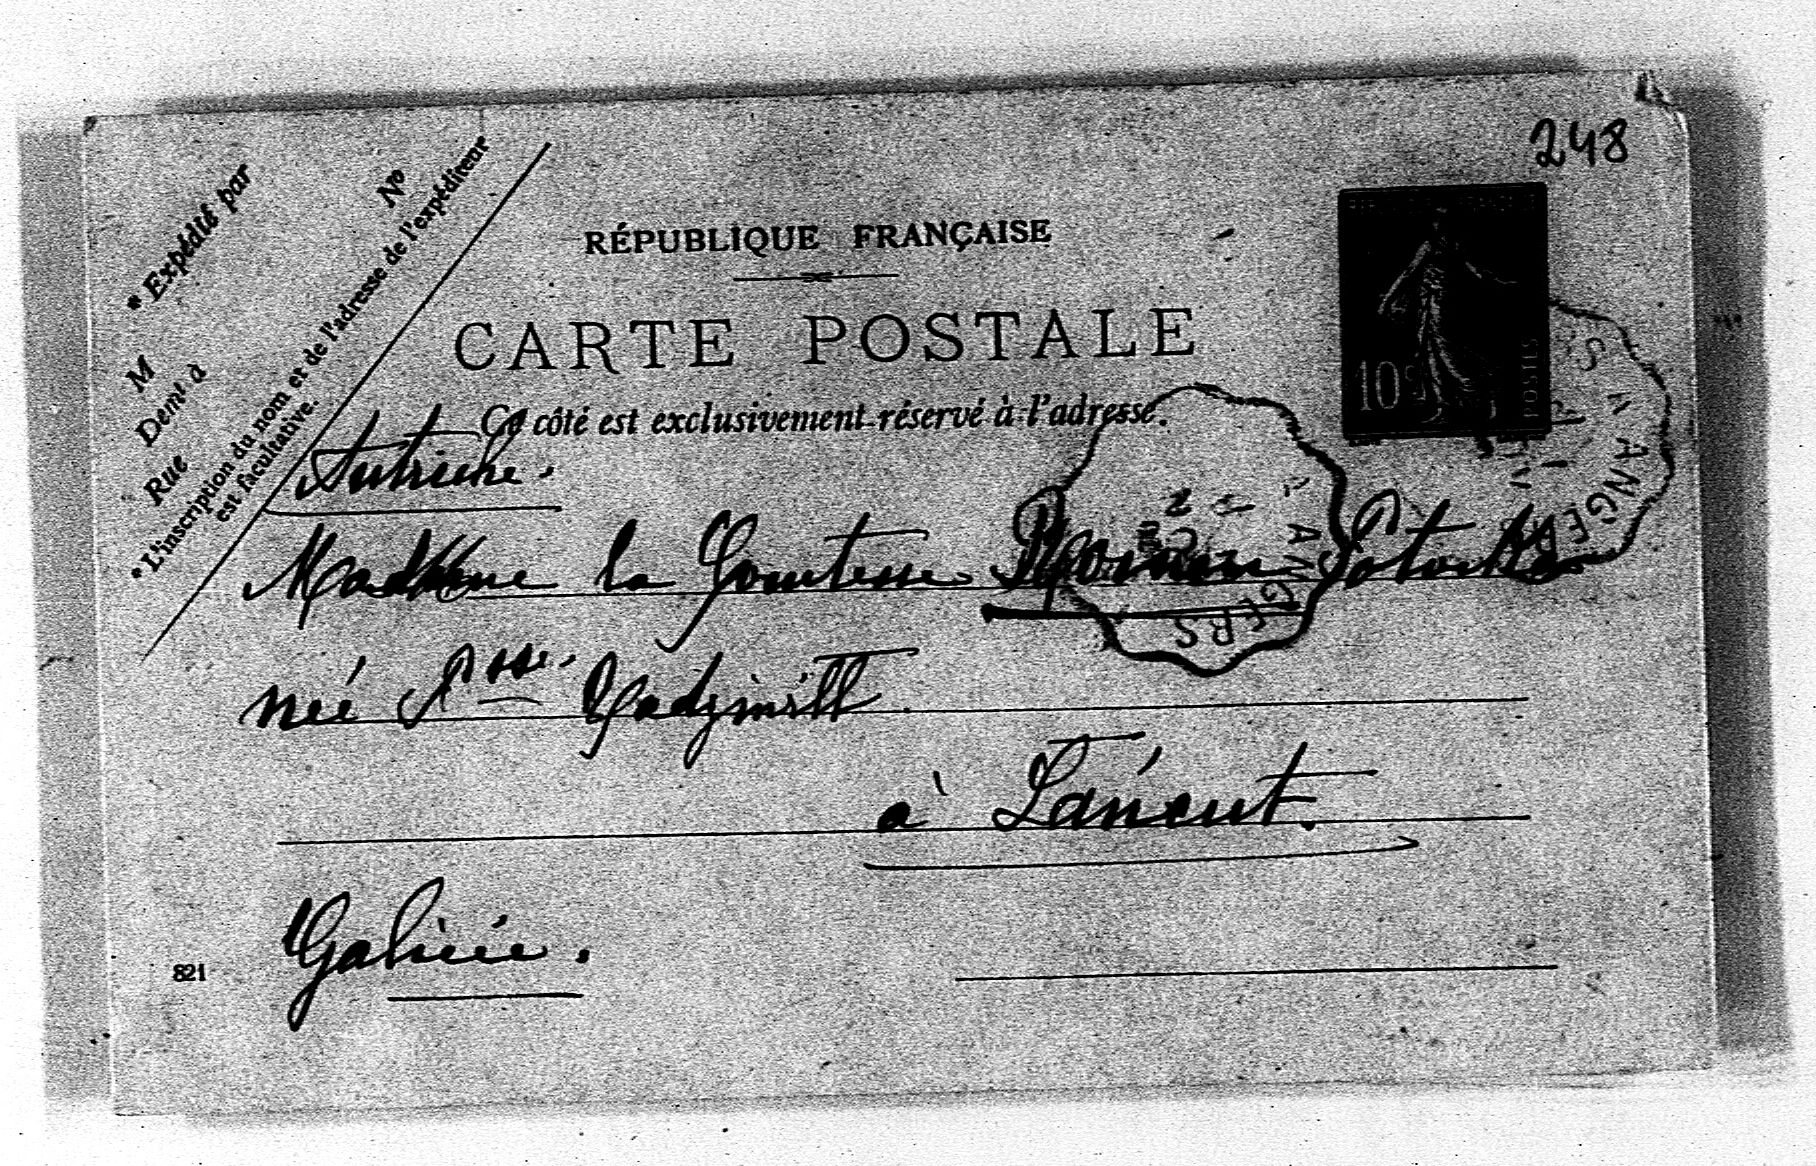 248
* Expédié par
M
Demt à
Rue
No
* L'inscription du nom et de l'adresse de l'expéditeur
est facultative.
RÉPUBLIQUE FRANÇAISE
CARTE POSTALE
Ce côté est exclusivement réservé à l'adresse.
10c
POSTES
ANGERS
ANGERS
Autriche.
Madame la Comtesse Roman Potocka
née Psse. Radziwill
à Łańcut.
Galicie.
821